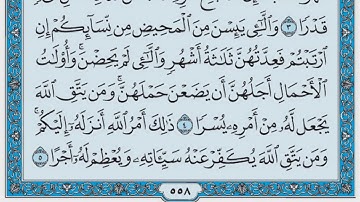 قَدْرًا ٣ وَٱلَّٰٓـِٔي يَئِسْنَ مِنَ ٱلْمَحِيضِ مِن نِّسَآئِكُمْ إِنِ
ٱرْتَبْتُمْ فَعِدَّتُهُنَّ ثَلَٰثَةُ أَشْهُرٍ وَٱلَّٰٓـِٔي لَمْ يَحِضْنَ ۚ وَأُو۟لَٰتُ
ٱلْأَحْمَالِ أَجَلُهُنَّ أَن يَضَعْنَ حَمْلَهُنَّ ۚ وَمَن يَتَّقِ ٱللَّهَ
يَجْعَل لَّهُۥ مِنْ أَمْرِهِۦ يُسْرًا ٤ ذَٰلِكَ أَمْرُ ٱللَّهِ أَنزَلَهُۥٓ إِلَيْكُمْ ۚ
وَمَن يَتَّقِ ٱللَّهَ يُكَفِّرْ عَنْهُ سَيِّـَٔاتِهِۦ وَيُعْظِمْ لَهُۥٓ أَجْرًا ٥
٥٥٨